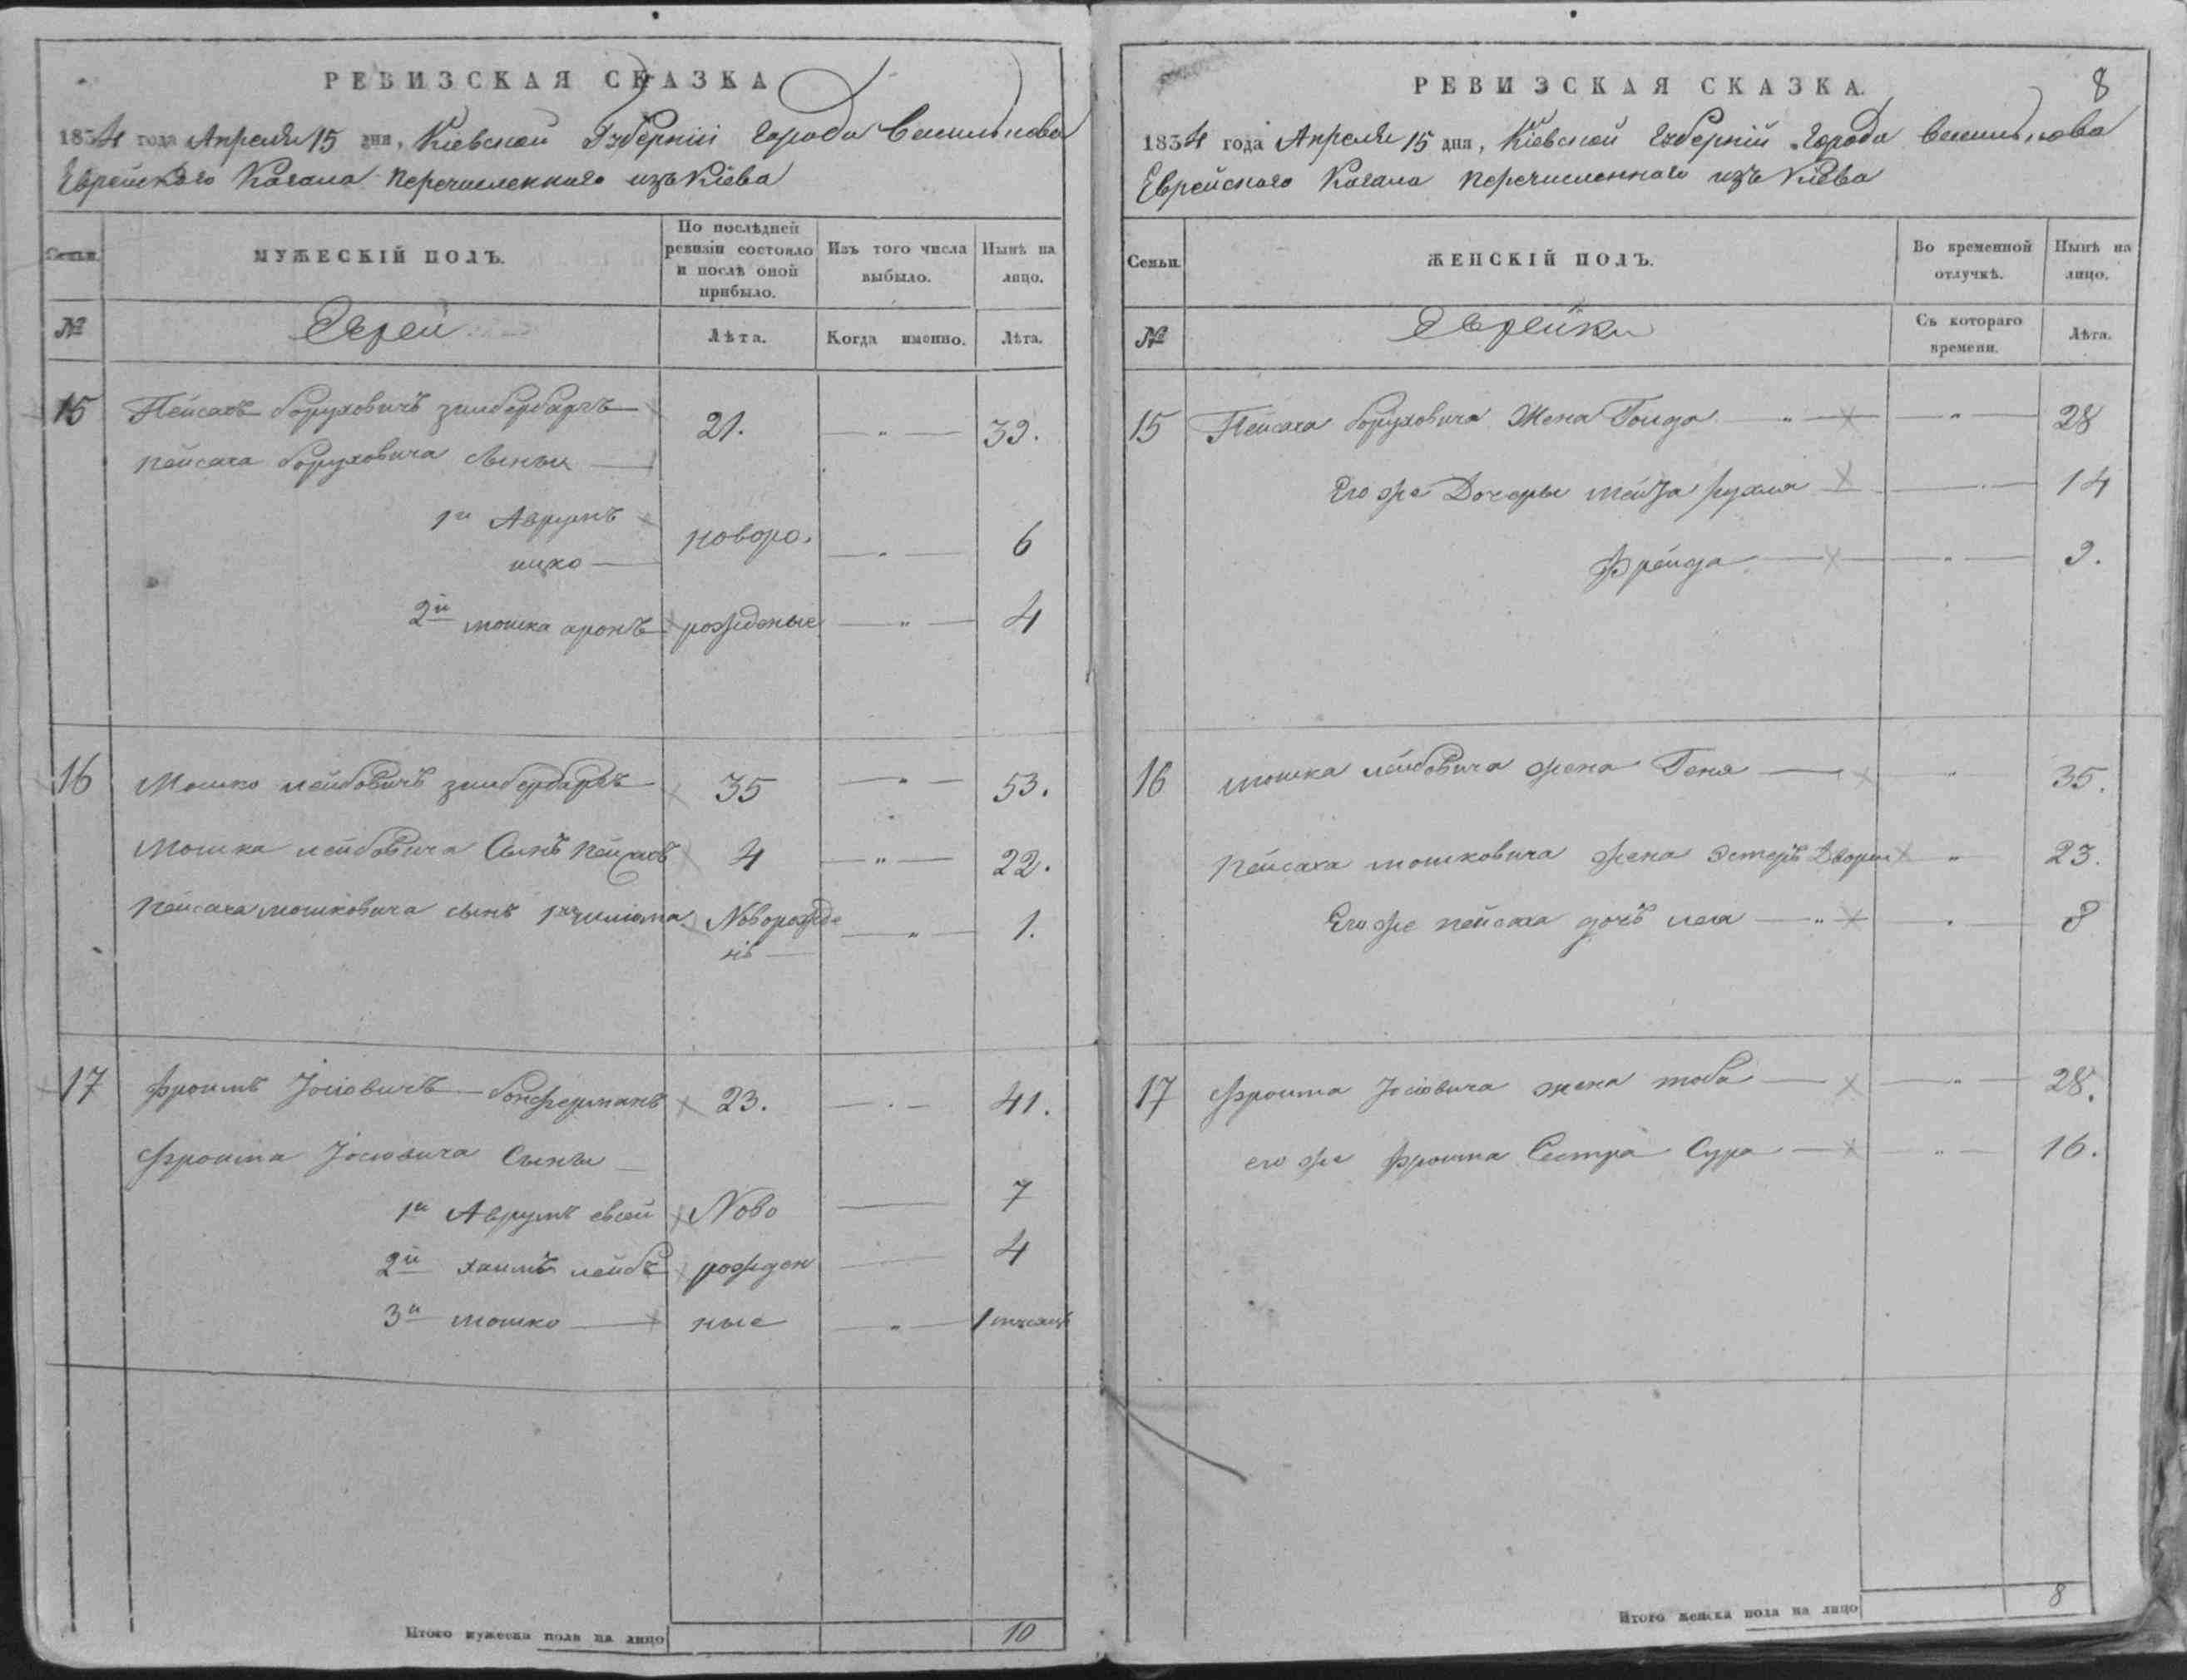 РЕВИЗСКАЯ СКАЗКА
1834 года Апреля 15 дня, Кіевской Губерніи Города Василькова
Еврейского Кагала перечисленнаго изъ Кіева
Семьи. МУЖЕСКІЙ ПОЛЪ. По послѣдней ревизіи состояло и послѣ оной прибыло. Изъ того числа выбыло. Нынѣ на лицо.
№ Евреи Лѣта. Когда именно. Лѣта.
15 Пейсахъ Боруховичъ зильбербаргъ 21. — " — 39.
пейсаха боруховича сыны
1й Аврумъ ицко новоро. — " — 6
2й мошка аронъ рожденые — " — 4
16 Мошко лейбовичъ зильбербаргъ 35 — " — 53.
Мошка лейбовича Сынъ пейсахъ 4 — " — 22.
пейсаха мошковича сынъ Новорожденъ — " — 1.
17 Фроимъ Іосіовичъ 23. — " — 41.
Фроима Іосіовича Сыны
1й Аврумъ евсей Ново — 7
2й хаимъ лейбъ рожден — 4
3й мошко ные — " — 1 мѣсяцъ
Итого мужеска пола на лицо 10
РЕВИЗСКАЯ СКАЗКА. 8
1834 года Апреля 15 дня, Кіевской Губерній Города Василькова
Еврейского Кагала перечисленнаго изъ Кіева
Семьи. ЖЕНСКІЙ ПОЛЪ. Во временной отлучкѣ. Нынѣ на лицо.
№ Еврейки Съ котораго времени. Лѣта.
15 Пейсаха боруховича Жена Голда — " — 28
Его же Дочеры рухля — 14
Фрейда — " — 9.
16 мошка лейбовича жена Геня — " 35.
пейсаха мошковича жена Эстеръ Двойра " 23.
Его же пейсаха дочъ лея — " — 8
17 Фроима Іосіовича жена тоба — " — 28.
его же Фроима Сестра Сура — " — 16.
Итого женска пола на лицо 8